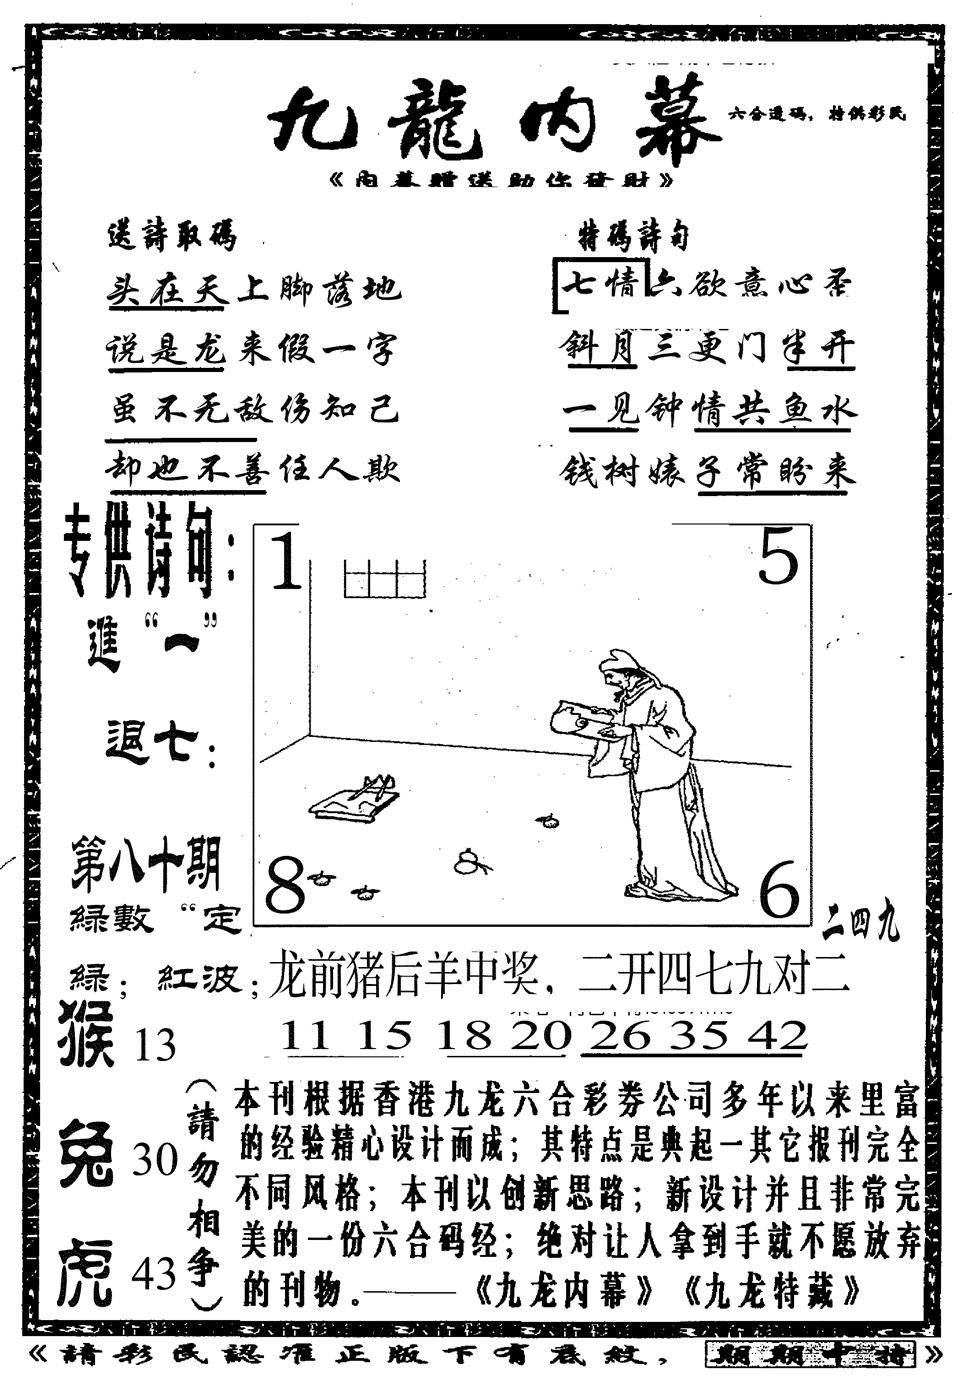 九龍内幕 六合透码，特供彩民
《内幕贈送助你發財》
送詩取碼
头在天上脚落地
说是龙来假一字
虽不无敌伤知己
却也不善任人欺
特碼詩句
七情六欲意心圣
斜月三更门半开
一见钟情共鱼水
钱树婊子常盼来
专供诗句：
進“一”
退七：
第八十期
綠數“定
綠；紅波；
猴 13
兔 30
虎 43
1 5
8 6
二四九
龙前猪后羊中奖．二开四七九对二
11 15 18 20 26 35 42
（請勿相争）
本刊根据香港九龙六合彩券公司多年以来里富
的经验精心设计而成；其特点是典起一其它报刊完全
不同风格；本刊以创新思路；新设计并且非常完
美的一份六合码经；绝对让人拿到手就不愿放弃
的刊物.——《九龙内幕》《九龙特藏》
《請彩民認准正版下有底紋，期期中特》